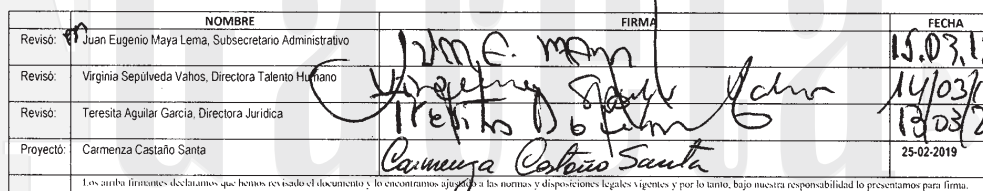 NOMBRE FIRMA FECHA
Revisó: Juan Eugenio Maya Lema, Subsecretario Administrativo
Revisó: Virginia Sepúlveda Vahos, Directora Talento Humano 14/03/
Revisó: Teresita Aguilar García, Directora Jurídica 13/03/2
Proyectó: Carmenza Castaño Santa Carmenza Castaño Santa 25-02-2019
Los arriba firmantes declaramos que hemos revisado el documento y lo encontramos ajustado a las normas y disposiciones legales vigentes y por lo tanto, bajo nuestra responsabilidad lo presentamos para firma.